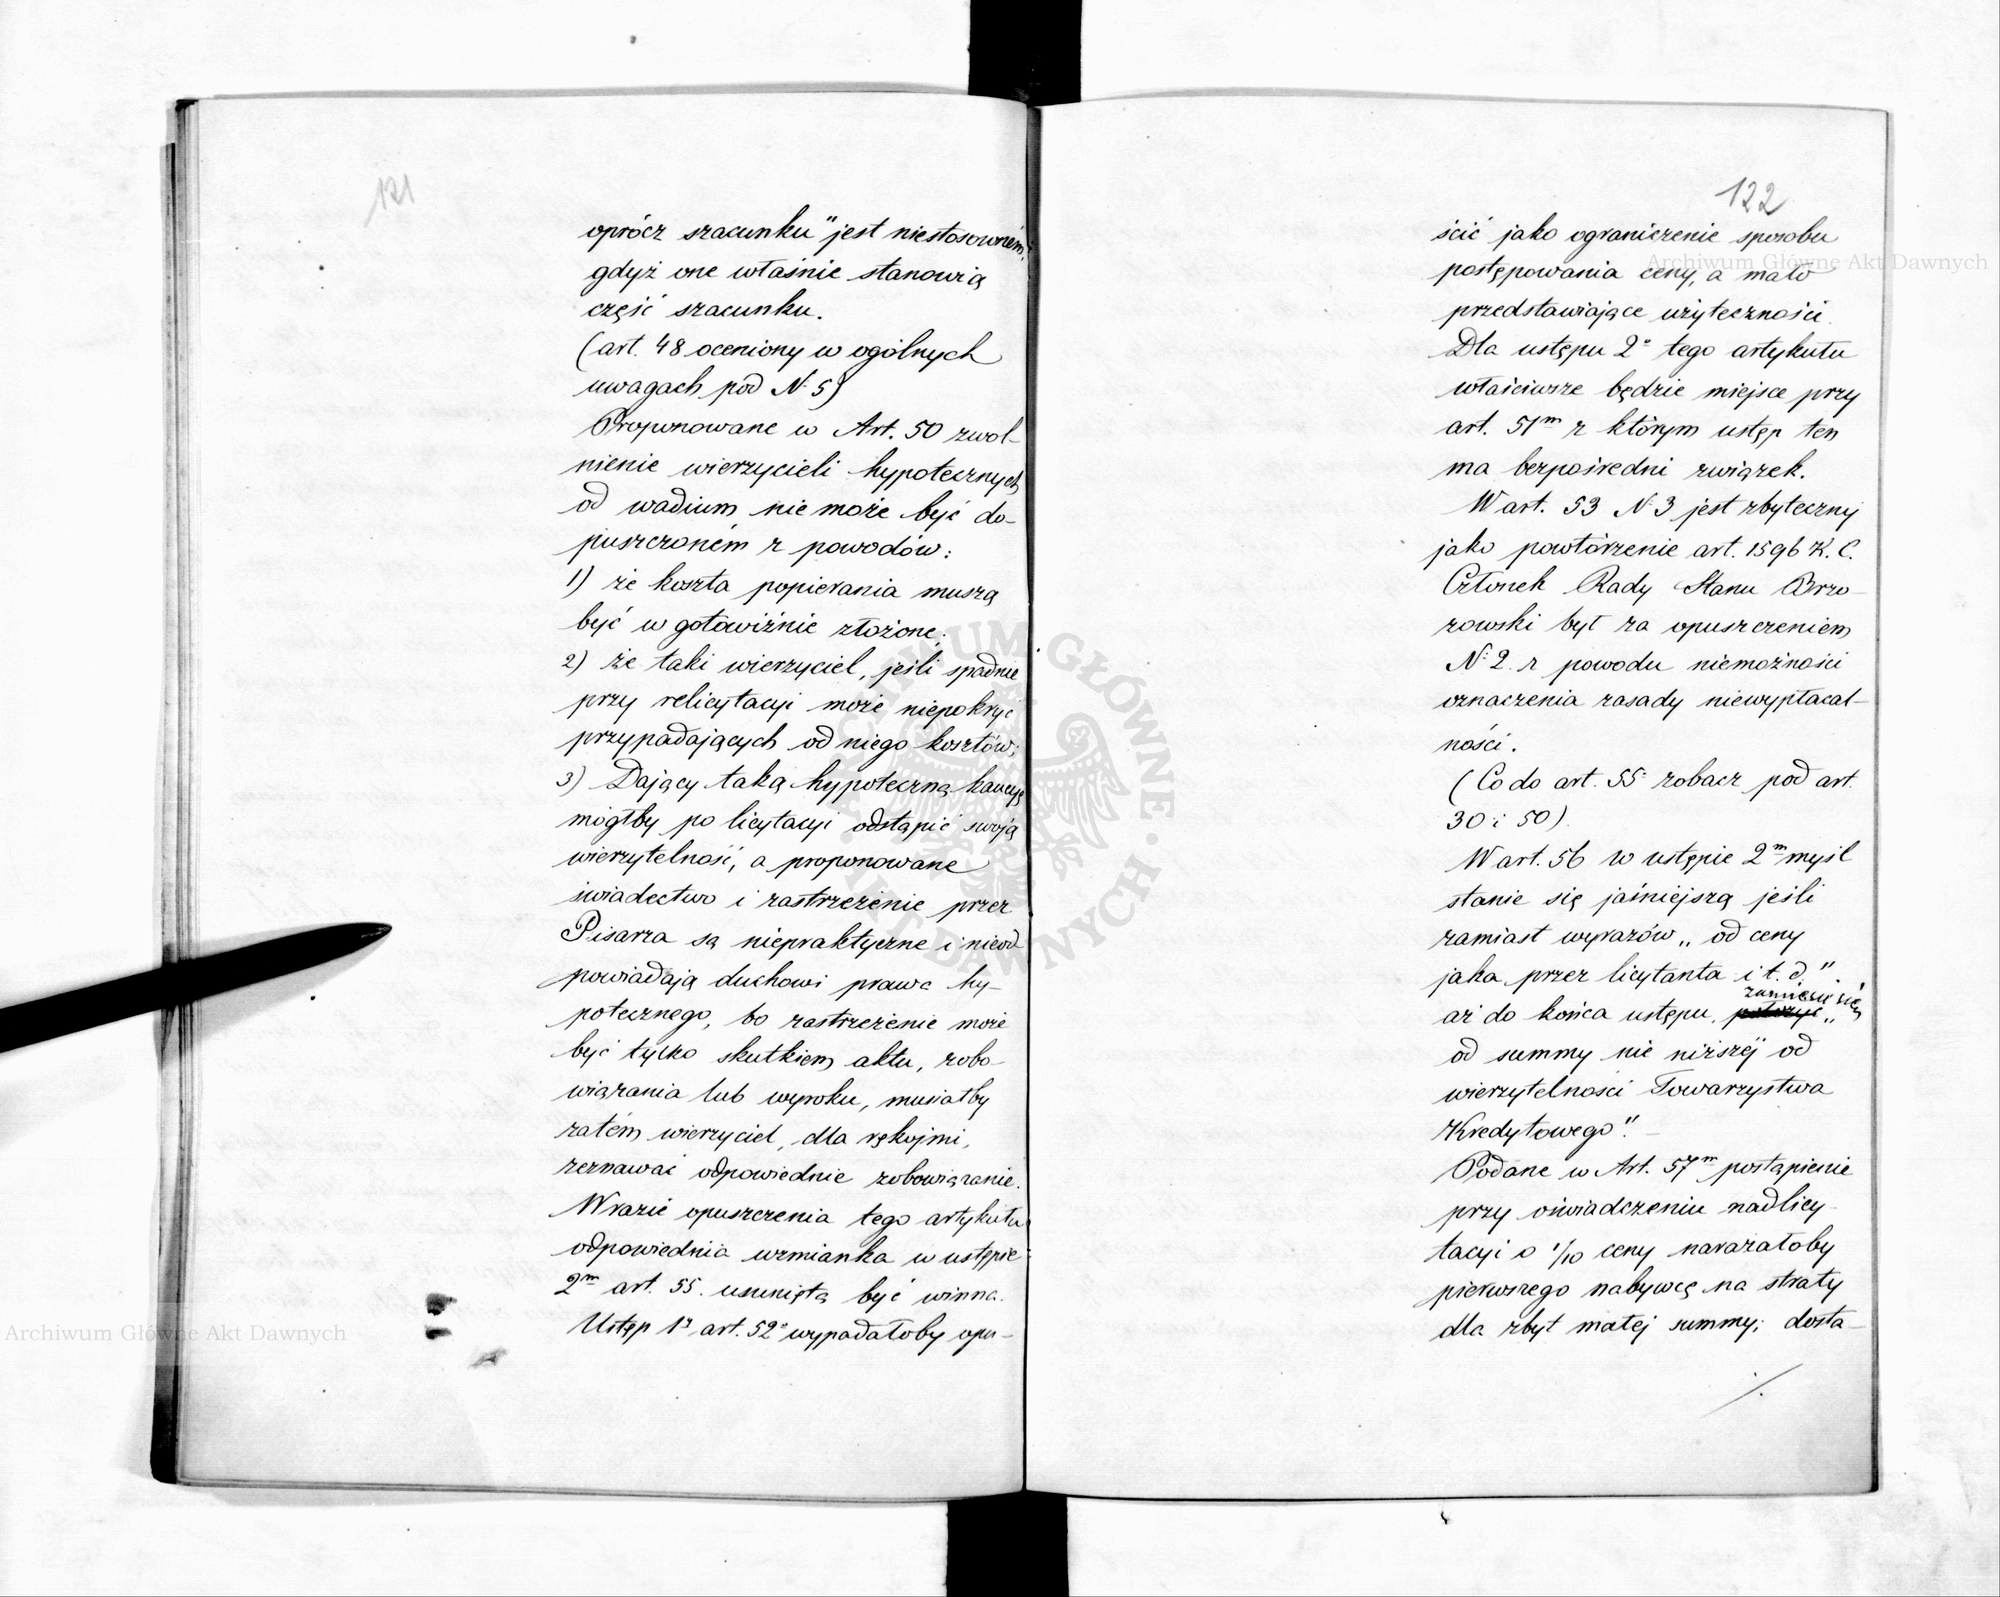 121
oprócz szacunku" jest niestosowném,
gdyż one właśnie stanowią
część szacunku.
(art. 48 oceniony w ogólnych
uwagach pod N. 5)
Proponowane w Art. 50 zwol-
nienie wierzycieli hypotecznych
od wadium nie może być do-
puszczoném z powodów:
1) że koszta popierania muszą
być w gotowiźnie złożone;
2) że taki wierzyciel, jeśli spadnie
przy relicytacyi może niepokryć
przypadających od niego kosztów;
3) Dający taką hypoteczną kaucyę
mógłby po licytacyi odstąpić swoją
wierzytelność, a proponowane
świadectwo i zastrzeżenie przez
Pisarza są niepraktyczne i nieod
powiadają duchowi prawa hy-
potecznego, bo zastrzeżenie może
być tylko skutkiem aktu, zobo-
wiązania lub wyroku, musiałby
zatém wierzyciel, dla rękojmi,
zeznawać odpowiednie zobowiązanie.
W razie opuszczenia tego artykułu
odpowiednia wzmianka w ustępie
2m art. 55. usunięta być winna.
Ustęp 1y art. 52o wypadałoby opu-
122
ścić jako ograniczenie sposobu
postępowania ceny, a mało
przedstawiające użyteczności.
Dla ustępu 2o tego artykułu
właściwsze będzie miejsce przy
art. 51m z którym ustęp ten
ma bezpośredni związek.
W art. 53 N. 3 jest zbyteczny
jako powtórzenie art. 1596 K. C.
Członek Rady Stanu Brzo-
zowski był za opuszczeniem
N. 2. z powodu niemożności
oznaczenia zasady niewypłacal-
ności.
(Co do art. 55 zobacz pod art.
30 i 50).
W art. 56 w ustępie 2m myśl
stanie się jaśniejszą jeśli
zamiast wyrazów „od ceny
jaka przez licytanta i t. d".
zamieści się
aż do końca ustępu, położyć „
od summy nie niższéj od
wierzytelności Towarzystwa
Kredytowego". -
Podane w Art. 57m postąpienie
przy oświadczeniu nadlicy-
tacyi o 1/10 ceny narażałoby
pierwszego nabywcę na straty
dla zbyt małej summy; dosta-
./.
Archiwum Główne Akt Dawnych
Archiwum Główne Akt Dawnych
ARCHIWUM GŁÓWNE AKT DAWNYCH